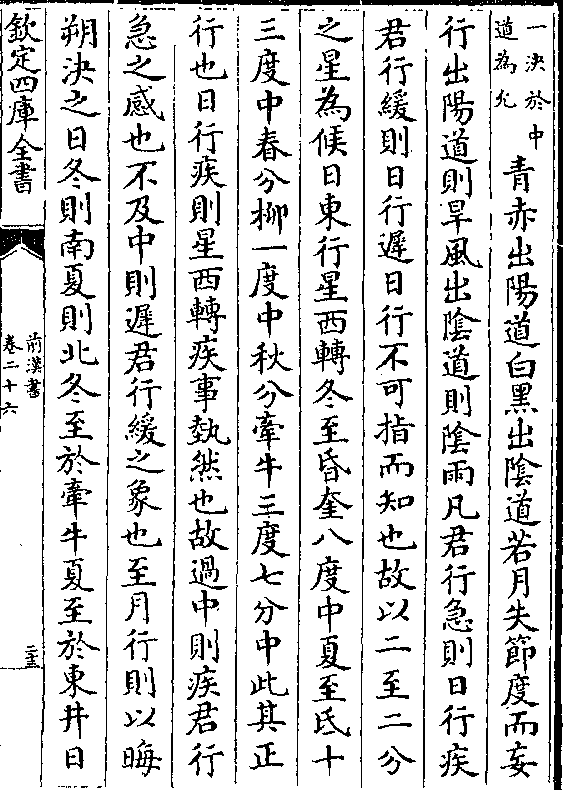 一決於中
道為允
青赤出陽道白黑出陰道若月失節度而妄
行出陽道則旱風出陰道則陰雨凡君行急則日行疾
君行緩則日行遲日行不可指而知也故以二至二分
之星為候日東行星西轉冬至昏奎八度中夏至氐十
三度中春分柳一度中秋分牽牛三度七分中此其正
行也日行疾則星西轉疾事埶然也故過中則疾君行
急之感也不及中則遲君行緩之象也至月行則以晦
朔決之日冬則南夏則北冬至於牽牛夏至於東井日
欽定四庫全書
前漢書
卷二十六
二十五